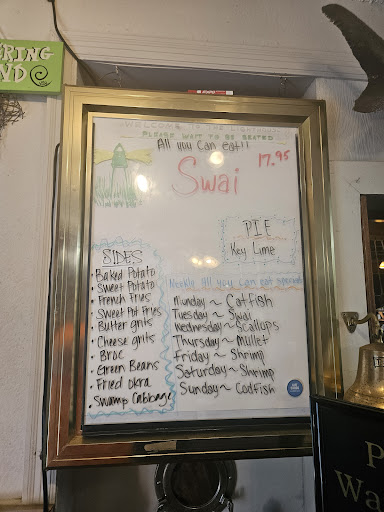 ERING
ND
WELCOME TO THE LIGHTHOUSE
PLEASE WAIT TO BE SEATED
All you Can eat!!
17.95
Swai
PIE
Key Lime
SIDES
• Baked Potato
• Sweet Potato
• French Fries
• Sweet Pot Fries
• Butter grits
• Cheese grits
• Broc
• Green Beans
• Fried Okra
• Swamp Cabbage
Weekly All you can eat specials
Munday ~ Catfish
Tuesday ~ Swai
Wednesday ~ Scallops
Thursday ~ Mullet
Friday ~ Shrimp
Saturday ~ Shrimp
Sunday ~ Codfish
P
Wa